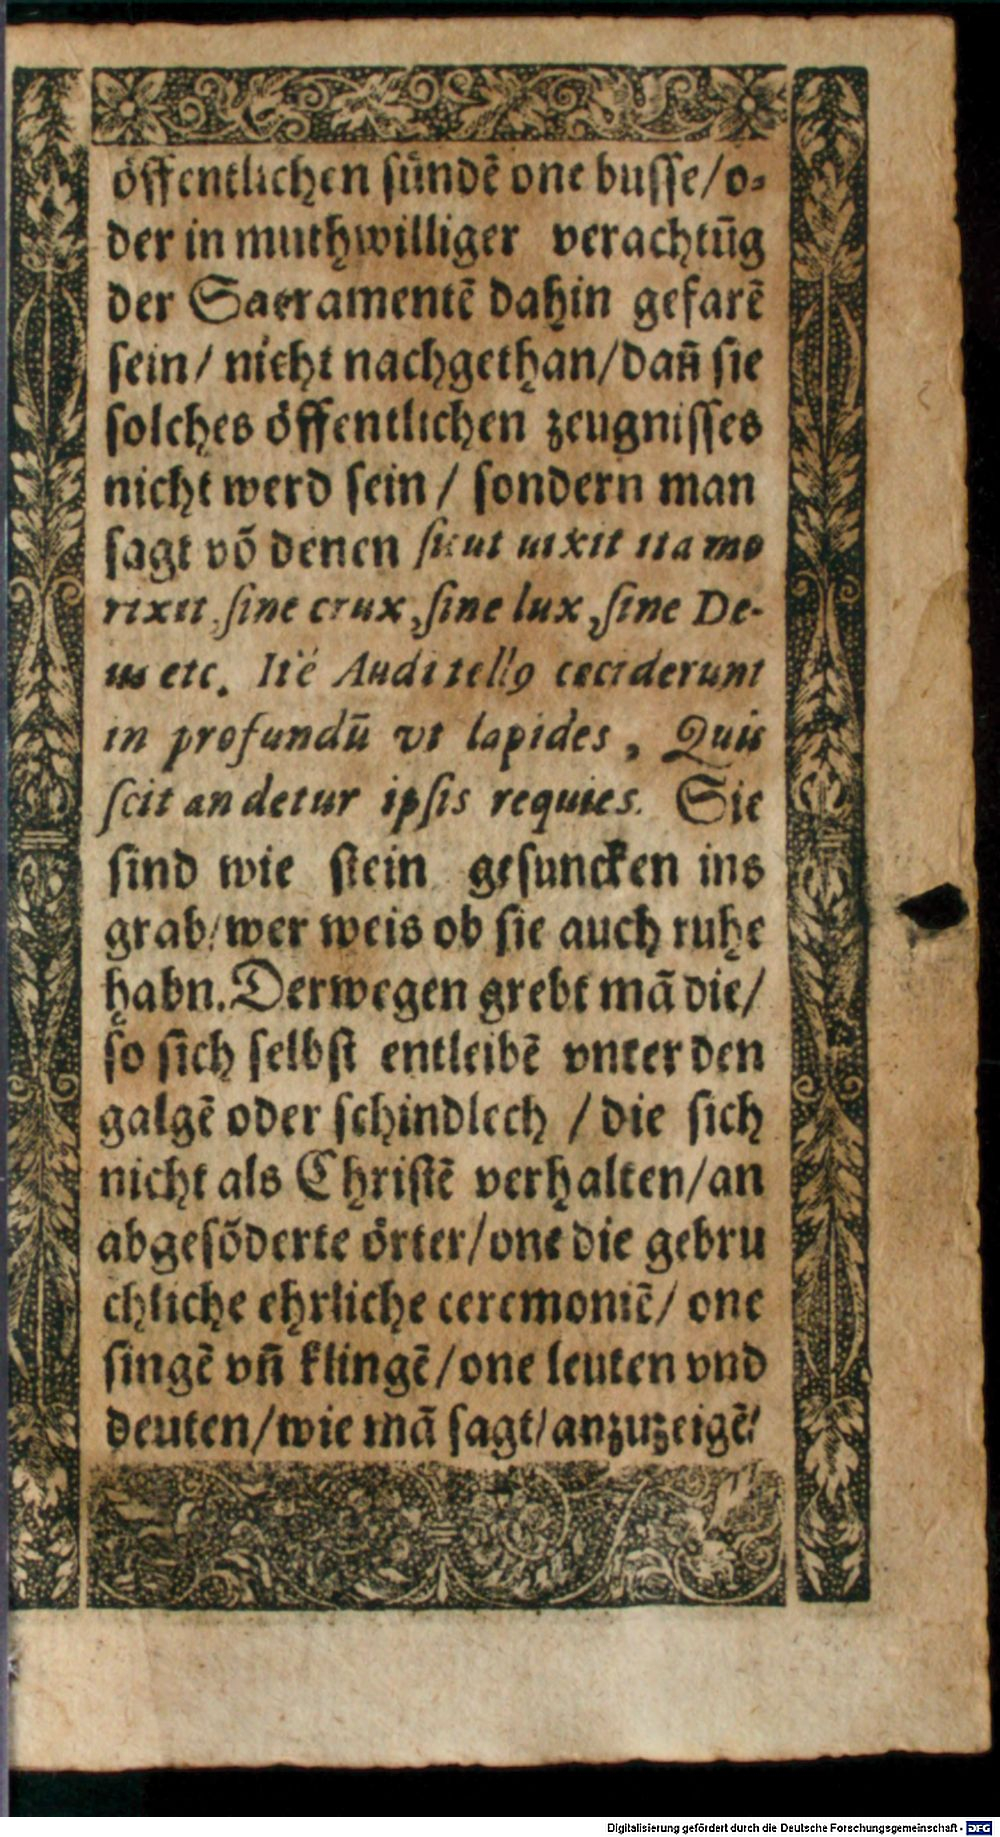 öffentlichen sündē one busse/o⸗
der in muthwilliger verachtūg
der Sacramentē dahin gefarē
sein/ nicht nachgethan/dañ sie
solches öffentlichen zeugnisses
nicht werd sein / sondern man
sagt vō denen sicut uixit ita mo
rixit, sine crux, sine lux, sine De-
us etc. Itē Audi tellꝰ ceciderunt
in profundū vt lapides, Quis
scit an detur ipsis requies. Sie
sind wie stein gesuncken ins
grab/wer weis ob sie auch ruhe
habn. Derwegen grebt mā die/
so sich selbst entleibē vnter den
galgē oder schindlech / die sich
nicht als Christē verhalten/an
abgesōderte örter/one die gebru
chliche ehrliche ceremoniē/ one
singē vñ klingē/one leuten vnd
deuten/wie mā sagt/anzuzeigē/
Digitalisierung gefördert durch die Deutsche Forschungsgemeinschaft - DFG